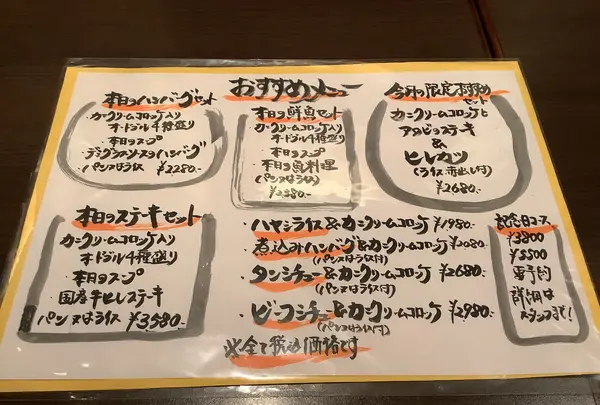 おすすめメニュー
本日のハンバーグセット
カニクリームコロッケ入り
オードブル4種盛り
・本日のスープ
・デミグラスソースのハンバーグ
パン又はライス ¥2280-
本日の鮮魚セット
カニクリームコロッケ入り
オードブル4種盛り
・本日のスープ
・本日の魚料理
(パン又はライス)
¥2580-
今月の限定
セット
カニクリームコロッケと
&
ヒレカツ
(ライス・赤出し付)
¥2680-
本日のステーキセット
カニクリームコロッケ入り
オードブル4種盛り
・本日のスープ
・国産牛ヒレステーキ
パン又はライス ¥3580-
・ハヤシライス&カニクリームコロッケ ¥1980-
・煮込みハンバーグ&カニクリームコロッケ ¥2080-
(パン又はライス付)
・タンシチュー&カニクリームコロッケ ¥2680-
(パン又はライス付)
・ビーフシチュー&カニクリームコロッケ ¥2980-
(パン又はライス付)
※全て税込価格です
記念日コース
¥3800
¥5500
要予約
詳細は
スタッフまで!